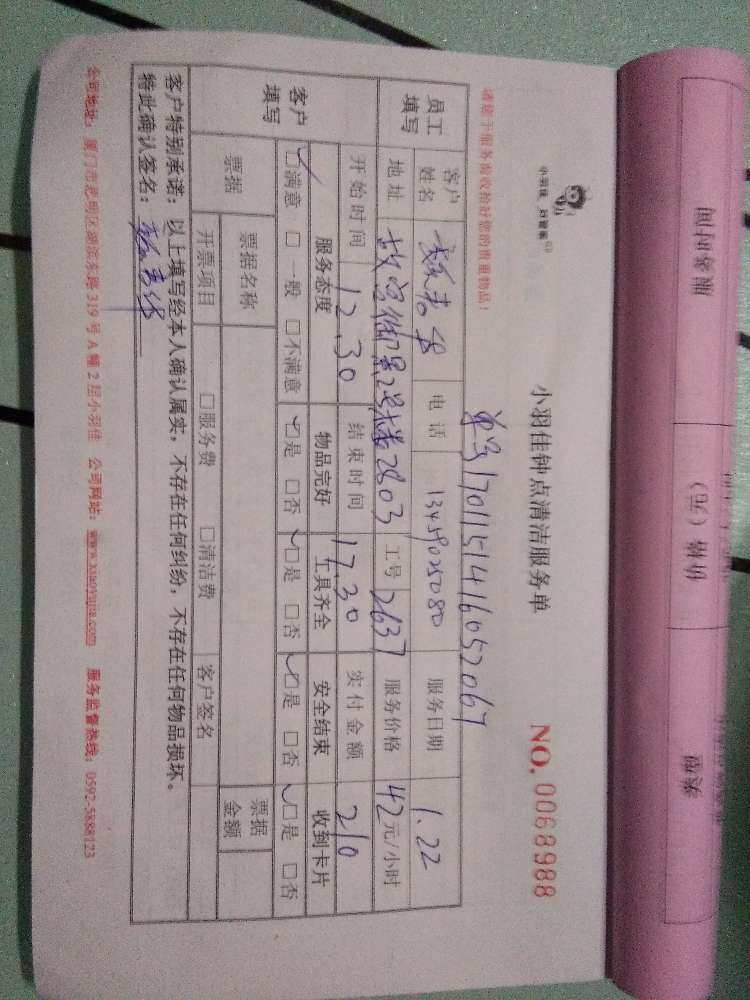 小羽佳 好管家
小羽佳钟点清洁服务单
NO.0068988
请您于服务验收拾好您的贵重物品!
单号1701151416052067
员工填写
客户姓名 电话 13459025080 服务日期 1.22
地址 2803 工号 2637 服务价格 42元/小时
客户填写
开始时间 12.30 结束时间 17.30 实付金额 210
服务态度 物品完好 工具齐全 安全结束 收到卡片
☑满意 □一般 □不满意 ☑是 □否 ☑是 □否 ☑是 □否 ☑是 □否
票据 票据名称 票据金额
开票项目 □服务费 □清洁费 客户签名
客户特别承诺:以上填写经本人确认属实,不存在任何纠纷,不存在任何物品损坏。
特此确认签名:
公司地址:厦门市思明区湖滨东路319号A幢2层小羽佳 公司网站:www.xiaoyujia.com 服务监督热线:0592-5888123
服务时间
价格(元)